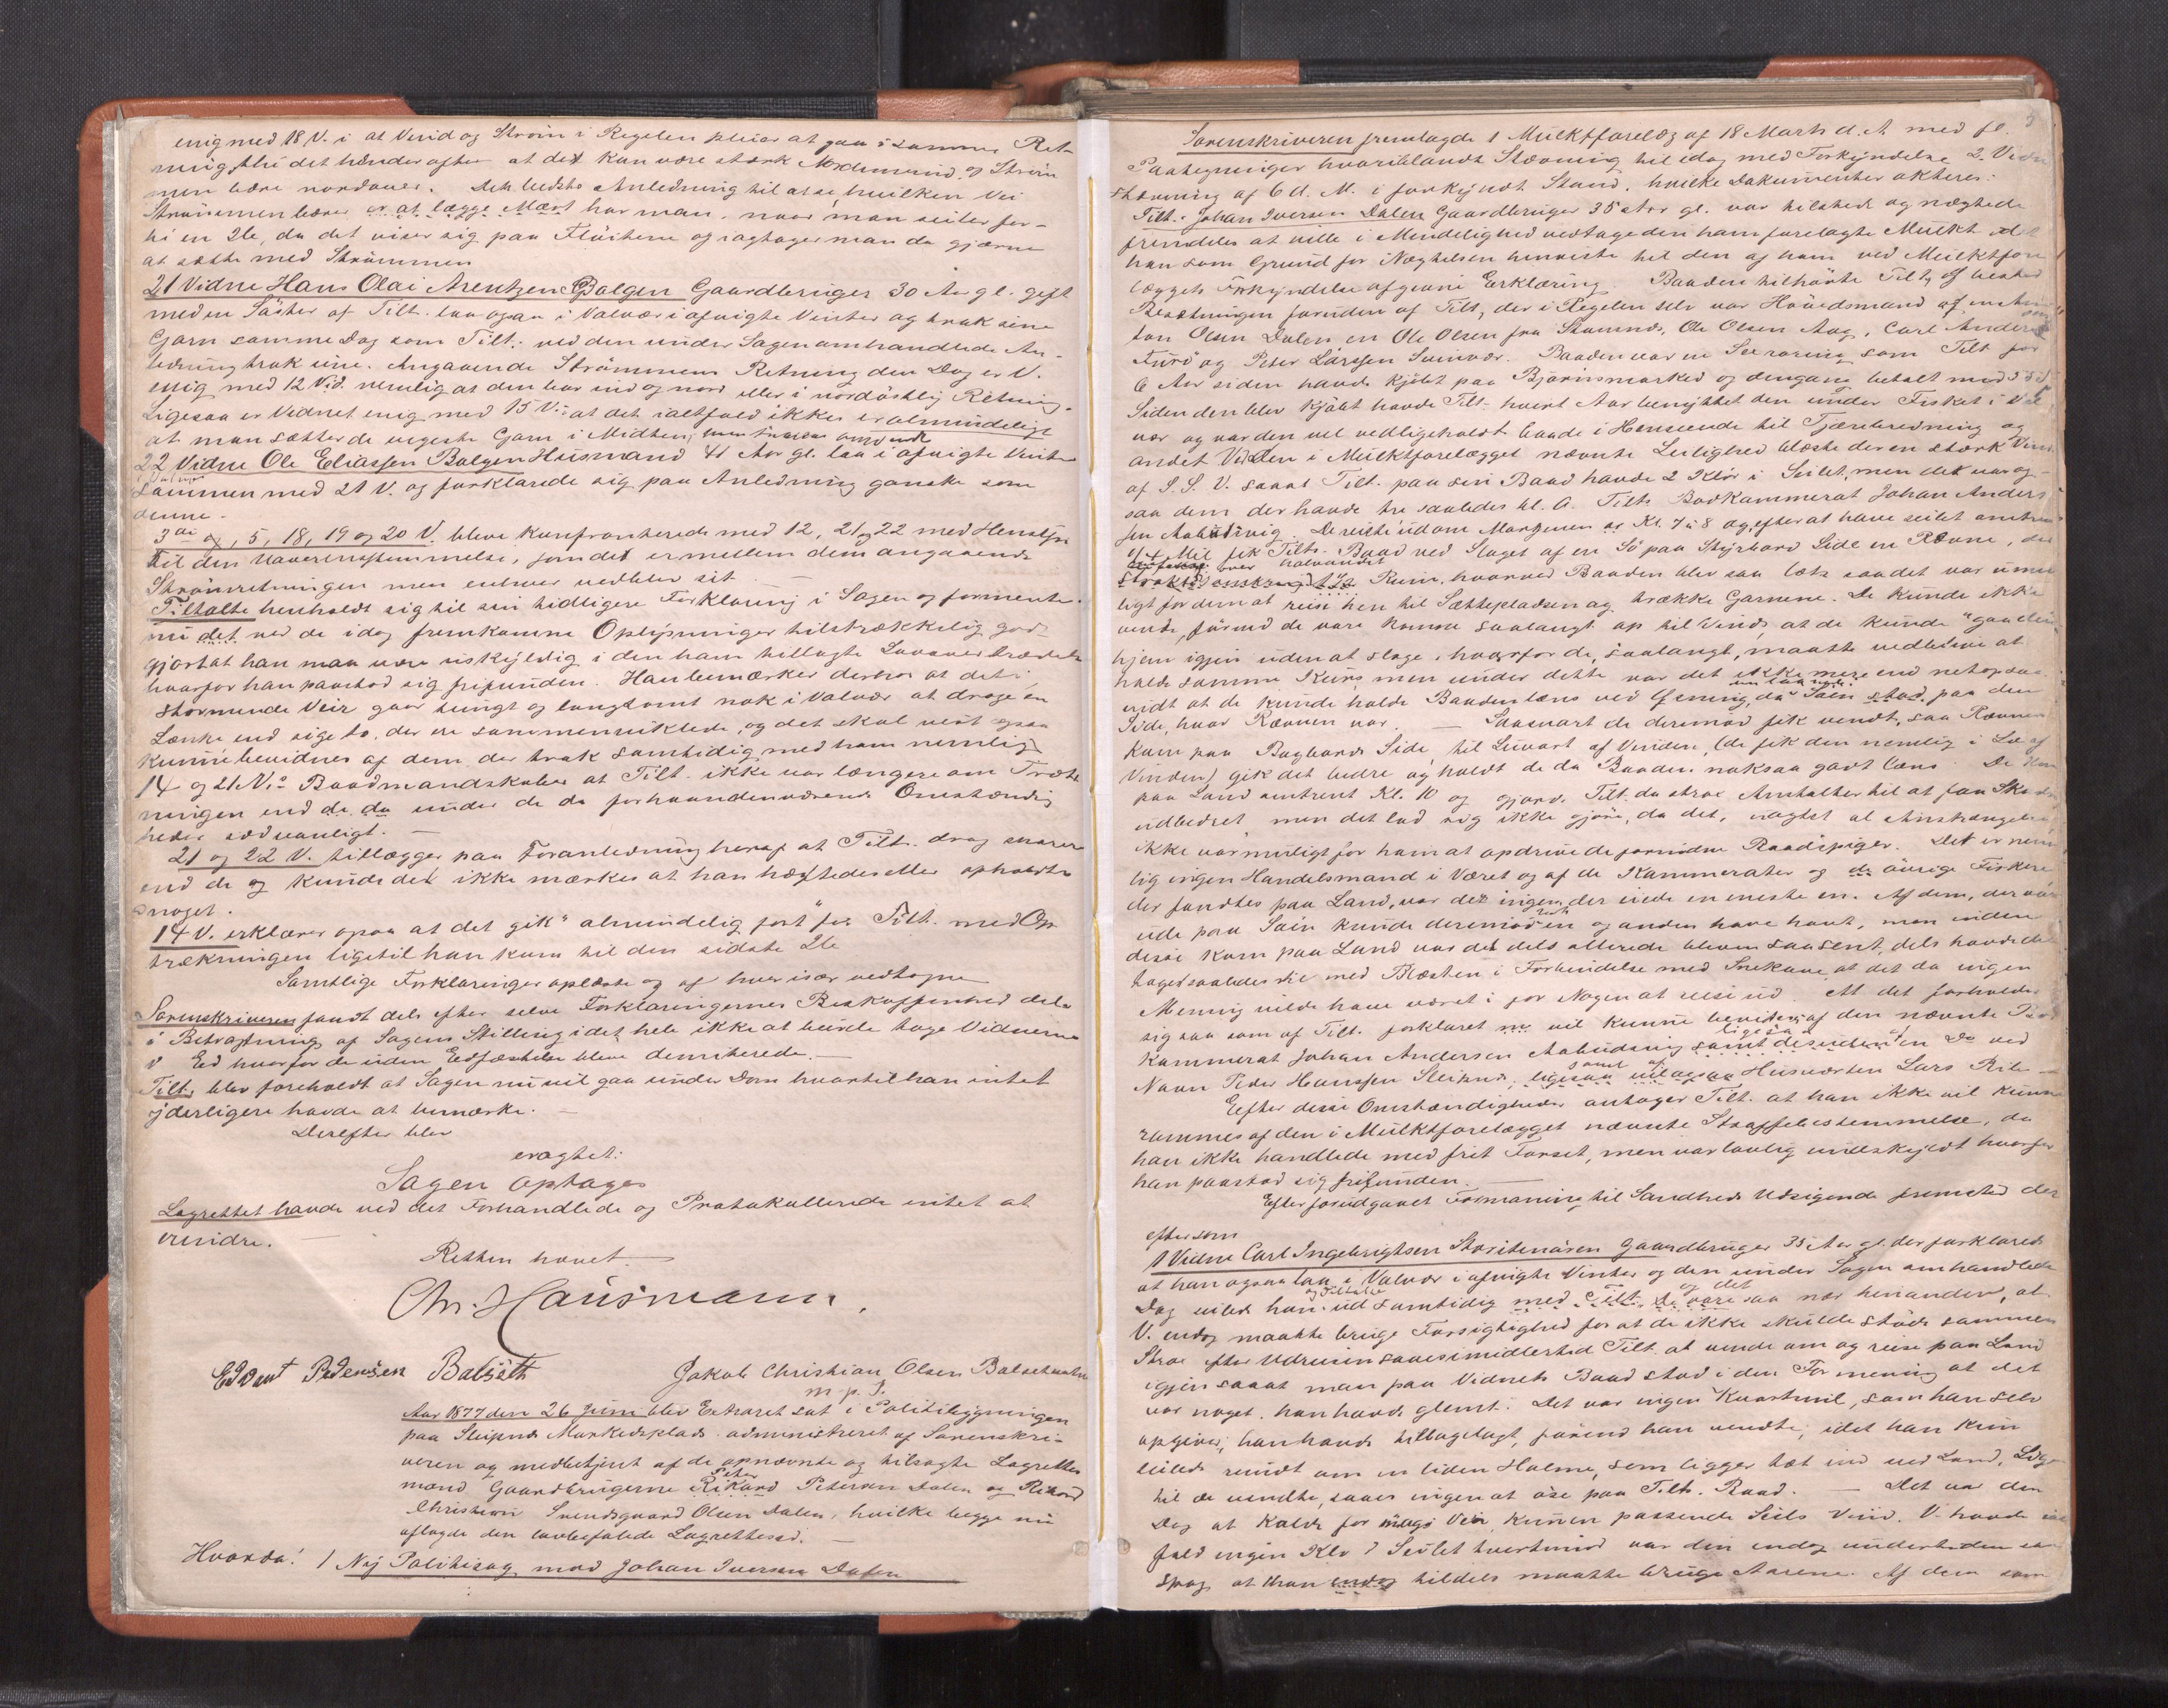 enig med 18 V. i at Vind og Strøm i Regelen pleier at gaa i samme Ret-
ning thi det hænder ofte at det kan være stærk Nordenvind og Strøm
men bære nordover. Den bedste Anledning til at se, hvilken Vei
Strømmen bærer er at lægge Mært har man, naar man seiler for-
bi en Ile, da det viser sig paa Fløiterne og iagtager man da gjerne
at sætte med Strømmen
21 Vidne Hans Olai Arentzen Balgen Gaardbruger 30 Aar gl. gift
med en Søster af Tilt. laa ogsaa i Valvær i afvigte Vinter og trak sine
Garn samme Dag som Tilt. ved den under Sagen omhandlede An-
ledning trak sine. Angaaende Strømmens Retning den Dag er V.
enig med 12 Vid. nemlig at den bar ind og nord eller i nordøstlig Retning.
Ligesaa er Vidnet enig med 15 V. i at det ialtfald ikke er almindeligt
at man sætter de vegeste Garn i Midten,
22 Vidne Ole Eliassen Balgen Husmand 41 Aar gl. laa i afvigte Vinter
i Valvær
sammen med 21 V. og forklarede sig paa Anledning ganske som
denne.
3die og, 5, 18, 19 og 20 V. bleve konfronterede med 12, 21 og 22 med Hensyn
til den Uoverensstemmelse, som det er mellem dem angaaende
Strømretningen men enhver vedblev sit
Tiltalte henholdt sig til sin tidligere Forklaring i Sagen og formente
nu det ved de idag fremkomne Oplysninger tilstrækkelig god-
gjort at han maa være uskyldig i den ham tillagte Lovovertrædelse
hvorfor han paastod sig frifunden. Han bemærker derhos at det i
stormende Veir gaar tungt og langsomt nok i Valvær at drage en
Lænke end sige to, der ere sammenviklede, og det skal vist ogsaa
kunne bevidnes af dem, der trak samtidig med ham nemlig
14 og 21 V.s Baadmandskaber at Tilt. ikke var længere om Træk
ningen end de da under de da forhaandenværende Omstændig
heder sædvanligt. —
21 og 22 V. tillægger paa Foranledning heraf at Tilt. drog snarere
end de og kunde det ikke mærkes at han hæftedes eller opholdtes
noget.
14 V. erklærer ogsaa at det gik "almindelig fort" for Tilt. med Op
trækningen ligetil han kom til den sidste Ile
Samtlige Forklaringer oplæste og af hver især vedtagne
Sorenskriveren fandt dels efter selve Forklaringernes Beskaffenhed dels
i Betragtning af Sagens Stilling i det hele ikke at burde tage Vidnerne
i Ed hvorfor de uden Edfæstelse bleve demitterede. —
Tilt. blev foreholdt at Sagen nu vil gaa under Dom hvortil han intet
yderligere havde at bemærke. —
Derefter blev
eragtet:
Sagen optages
Lagrettet havde ved det Forhandlede og Protokollerede intet at
erindre. —
Retten hævet —
Chr. Hausmann.
Edvart Pedersen Balseth Jakob Christian Olsen Balsetvalen
m. p. P.
Aar 1877 den 26 Juni blev Extraret sat i Politibygningen
paa Sleipnes Markedsplads administreret af Sorenskri-
veren og medbetjent af de opnævnte og tilsagte Lagrettes
Peter
mænd Gaardbrugerne Rikard Petersen Dalen og Rikard
Christian Svendsgaard Olsen Dalen, hvilke begge nu
aflagde den lovbefalede Lagrettesed. —
Hvorda! 1 Ny Politisag mod Johan Iversen Dalen
3
Sorenskriveren fremlagde 1 Mulktforelæg af 18 Marts d. A. med fl.
Paategninger hvoriblandt Stævning til idag med Forkyndelse 2. Vidne
stævning af 6 d. M. i forkyndt Stand, hvilke Dokumenter akteres.
Tilt. Johan Iversen Dalen Gaardbruger 35 Aar gl. var tilstede og nægtede
fremdeles at ville i Mindelighed vedtage den ham forelagte Mulkt idet
han som Grund for Nægtelsen henviste til den af ham ved Mulktfore
læggets Forkyndelse afgivne Erklæring. Baaden tilhørte Tilt. og bestod
Besætningen foruden af Tilt., der i Regelen selv var Høvedsmand af
Olsen Dalen en Ole Olsen fra Stamnes, Ole Olsen Aag, Carl Andersen
Furø og Peter Larssen Svinvær. Baaden var en Seeraring som Tilt for
6 Aar siden havde kjøbt paa Bjørnsmarked og dengang betalt med
Siden den blev kjøbt havde Tilt. hvert Aar benyttet den under Fisket i Val
vær og var den vel vedligeholdt baade i Henseende til Tjærebredning og
andet Ved den i Mulktforelægget nævnte Leilighed blæste der en stærk Vind
af S. S. V. saaat Tilt. paa sin Baad havde 2 Klør i Seilet, men det var og-
saa dem der havde tre saaledes bl. A. Tilts Bodkammerat Johan Anders
sen Aakvikvig. De reiste ud om Morgenen ca Kl. 7 à 8 og, efter at have seilet omtrent
1/4 Mil fik Tilts. Baad ved Slaget af en Sø paa Styrbord Side en Revne, der
over halvandet
strakte Rum, hvorved Baaden blev saa læk saa det var umu
ligt for dem at reise hen til Sættepladsen og trække Garnene. De kunde ikke
vende, førend de vare komne saalangt op til Vinds, at de kunde "gaa lens"
hjem igjen uden at slage, hvorfor de, saalangt, maatte vedblive at
holde samme Kurs, men under dette var det ikke mere end netop saa
vidt at de kunde holde Baaden læns ved Øsning, da Søen stod paa den
Side, hvor Revnen var. — Saasnart de derimod fik vendt, saa Revnen
kom paa Bagbords Side til Luvart af Vinden, (de fik den nemlig i Læ af
Vinden) gik det bedre og holdt de da Baaden noksaa godt læns. De kom
paa Land omtrent Kl. 10 og gjorde Tilt. da strax Anstalter til at faa Skaden
udbedret men det lod sig ikke gjøre, da det, uagtet al Anstrængelse,
ikke var muligt for ham at opdrive de fornødne Baadspiger. Det er nem
lig ingen Handelsmand i Været og af de Kammerater og de øvrige Fiskere
der fandtes paa Land, var det ingen, der eiede en eneste en. Af dem, der vare
ude paa Søen kunde derimod en og anden have havt, men inden
disse kom paa Land var det dels allerede bleven saa sent, dels havde det
taget saaledes til med Blæsten i Forbindelse med Snekave, at det da ingen
Mening vilde have været i for Nogen at reise ud. At det forholder
sig saa som af Tilt. forklaret vil kunne bevidnes af den nævnte Bod
ligesaa af
kammerat Johan Andersen Aakvikvig samt desuden en Do ved
samt af
Navn Peder Hansen Sleipnes, Husværten Lars
Efter disse Omstændigheder antager Tilt. at han ikke vil kunne
rammes af den i Mulktforelægget nævnte Straffebestemmelse, da
han ikke handlede med frit Forsæt, men var lovlig undskyldt hvorfor
han paastod sig frifunden. —
Efter forudgaaet Formaning til Sandheds Udsigende fremstod der
efter som
1 Vidne Carl Ingebrigtsen Gaardbruger 35 Aar gl. der forklarede
at han ogsaa laa i Valvær i afvigte Vinter og den under Sagen omhandlede
og Tiltalte og det
Dag seilede han ud samtidig med Tilt. de vare saa nær hinanden, at
V. endog maatte bruge Forsigtighed for at de ikke skulde støde sammen
Strax efter Udreisen saaes imidlertid Tilt. at vende om og reise paa Land
igjen saaat man paa Vidnets Baad stod i den Formening at det
var noget, han havde glemt. Det var ingen Kvartmil, som han selv
opgiver, han havde tilbagelagt, førend han vendte, idet han kun
seilede rundt om en liden Holme, som ligger tæt ind ved Land, Lige
til de vendte, saaes ingen at øse paa Tilts. Baad. — Det var den
Dag at kalde for magt Veir, kun en passende Seils Vind. V. havde ial
fald ingen Klo i Seilet tvertimod var den endog undertiden saa
spag at man endog tildels maatte bruge Aarene. Af dem som